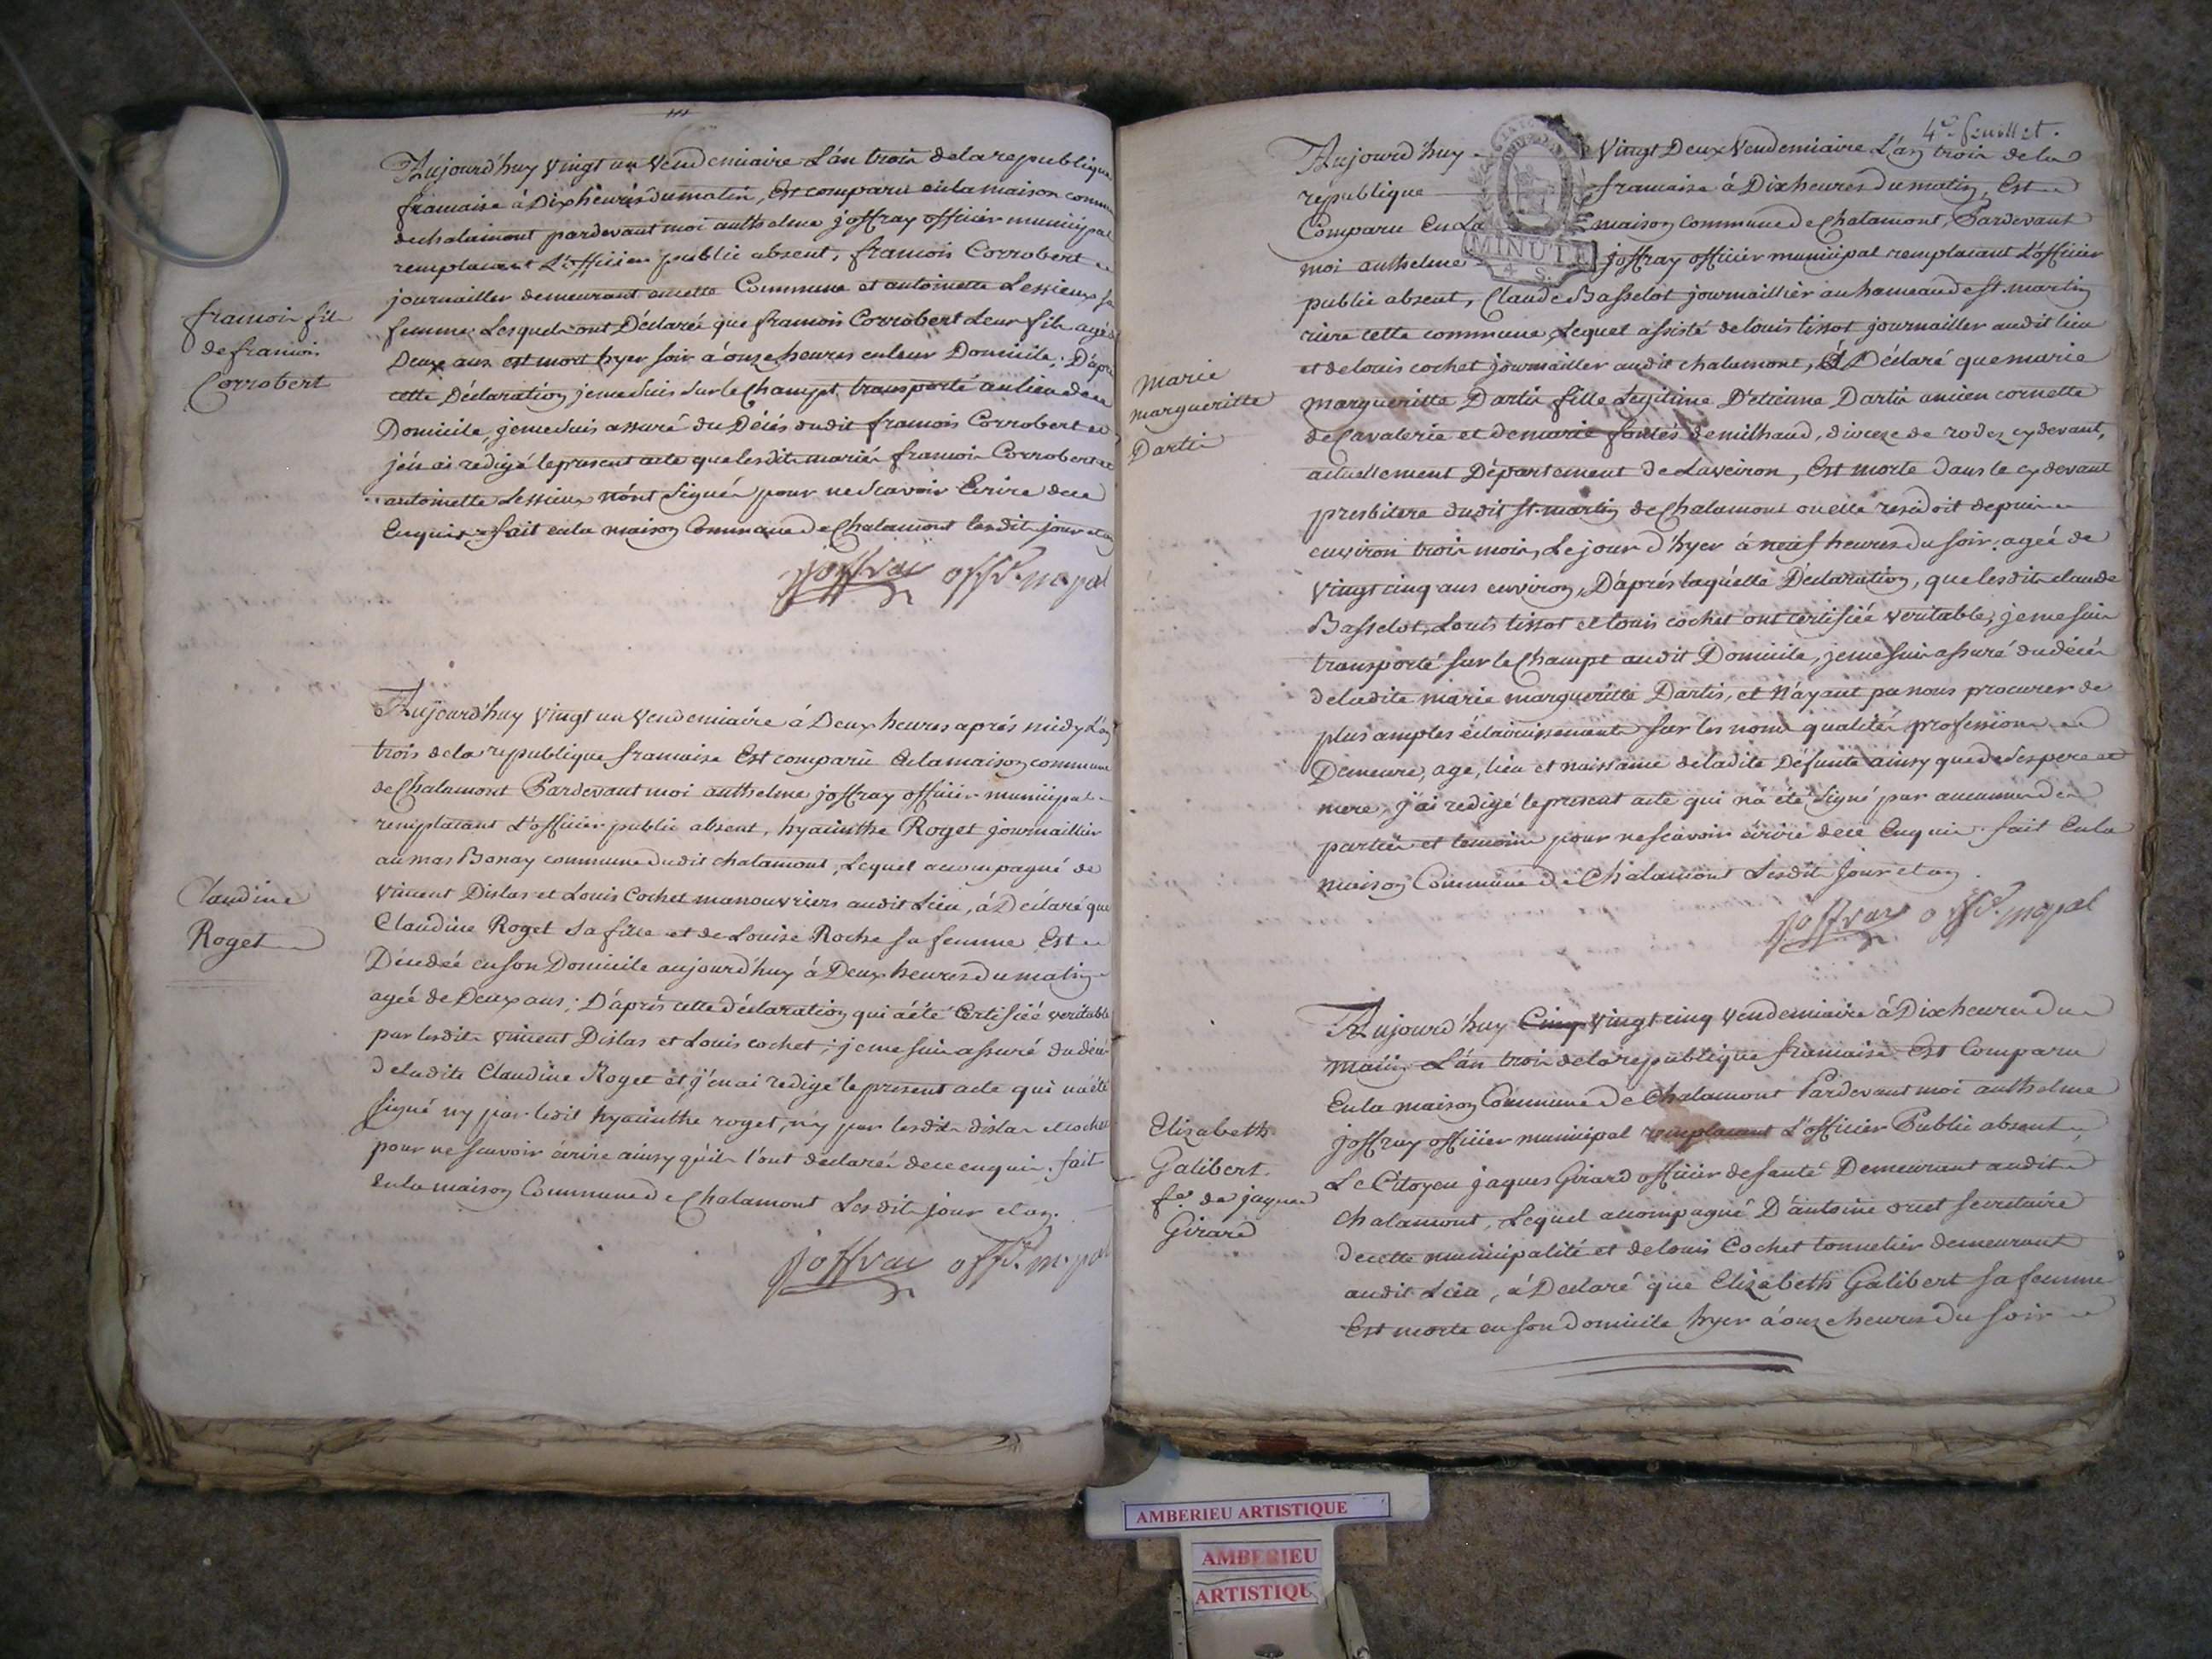 Aujourd'huy vingt un vendemiaire L'an trois de la republique
francaise à Dix heures du matin, Est comparu en la maison commune
de chalamont pardevant moi anthelme joffray officier municipal
remplacant L'officier public absent, francois Corrobert
journailler demeurant en cette Commune et antoinette Lessieux sa
femme Lesquels ont Déclaré que francois Corrobert Leur fils agé de
Deux ans est mort hyer soir à onze heures en leur Domicile; D'après
cette Déclaration je me suis sur le Champt transporté au lieu de ce
Domicile, je me suis assuré du Décés dudit francois Corrobert et
j'en ai rédigé le present acte que lesdits mariés francois Corrobert et
antoinette Lessieux n'ont signé pour ne scavoir Ecrire de ce
Enquis. fait en la maison Commune de Chalamont lesdits jour et an
joffray off.r m.pal
francois fils
de francois
Corrobert
Aujourd'huy vingt un vendemiaire à Deux heures aprés midy L'an
trois de la republique francaise Est comparu En la maison commune
de Chalamont Pardevant moi anthelme joffray officier municipal
remplacant L'officier public absent, hyacinthe Roget journaillier
au mas Bonay commune dudit chalamont, Lequel acompagné de
vincent Dislas et Louis Cochet manouvriers audit Lieu, à Déclaré que
Claudine Roget sa fille et de Louise Roche sa femme Est
Décedée en son Domicile aujourd'huy à Deux heures du matin
agée de Deux ans; D'aprés cette déclaration qui a été Certifiée veritable
par lesdits vincent Dislas et Louis cochet; je me suis assuré du décés
de ladite Claudine Roget et j'en ai redigé le present acte qui n'a été
signé ny par ledit hyacinthe roget, n'y par lesdits dislas et cochet
pour ne scavoir écrire ainsy qu'ils l'ont declaré de ce enquis. fait
En la maison Commune de Chalamont Lesdits jour et an.
joffray off.r m.pal
Claudine
Roget
4e feuillet.
Aujourd'huy vingt Deux Vendemiaire L'an trois de la
republique francaise à Dix heures du matin, Est
Comparu En La maison Commune de Chalamont, Pardevant
moi anthelme joffray officier municipal remplacant L'officier
MINUTE
4 S.
public absent, Claude Basselot journaillier au hameau de st. martin
riere cette commune, Lequel assisté de louis tissot journailler audit lieu
et de louis cochet journailler audit chalamont, à Déclaré que marie
margueritte Dartis fille Legitime D'etienne Dartis ancien cornette
de Cavalerie et de marie fontés de milhaud, diocese de rodez cy devant,
actuellement Département de Laveiron, Est morte dans le cy devant
presbitere dudit st. martin de Chalamont ou elle residoit depuis
environ trois mois, Le jour d'hyer à neuf heures du soir, agée de
vingt cinq ans environ, D'après laquelle Déclaration, que lesdits claude
Basselot, Louis tissot et louis cochet ont certifiée veritable, je me suis
transporté sur le Champt audit Domicile, je me suis assuré du décés
de ladite marie margueritte Dartis, et n'ayant pu nous procurer de
plus amples éclaircissements sur les noms qualités professions
Demeure, age, lieu et naissance de ladite Défunte ainsy que de ses pere et
mere, j'ai redigé le present acte qui n'a été signé par aucunne des
parties et temoins pour ne scavoir écrire de ce Enquis. fait En la
maison Commune de Chalamont Lesdits jour et an.
joffray off.r m.pal
marie
margueritte
Dartis
Aujourd'huy Cinq vingt cinq vendemiaire à Dix heures du
matin L'an trois de la republique francaise Est Comparu
En la maison Commune de Chalamont Pardevant moi anthelme
joffray officier municipal remplacant L'officier Public absent,
Le Citoyen jaques Girard officier de santé Demeurant audit
chalamont, Lequel acompagné D'antoine oret secretaire
de cette municipalité et de louis Cochet tonnelier demeurant
audit Lieu, à Declaré que Elizabeth Galibert sa femme
Est morte en son domicile hyer à onze heures du soir
Elizabeth
Galibert
fe. de jaques
Girard
AMBERIEU ARTISTIQUE
AMBERIEU
ARTISTIQU